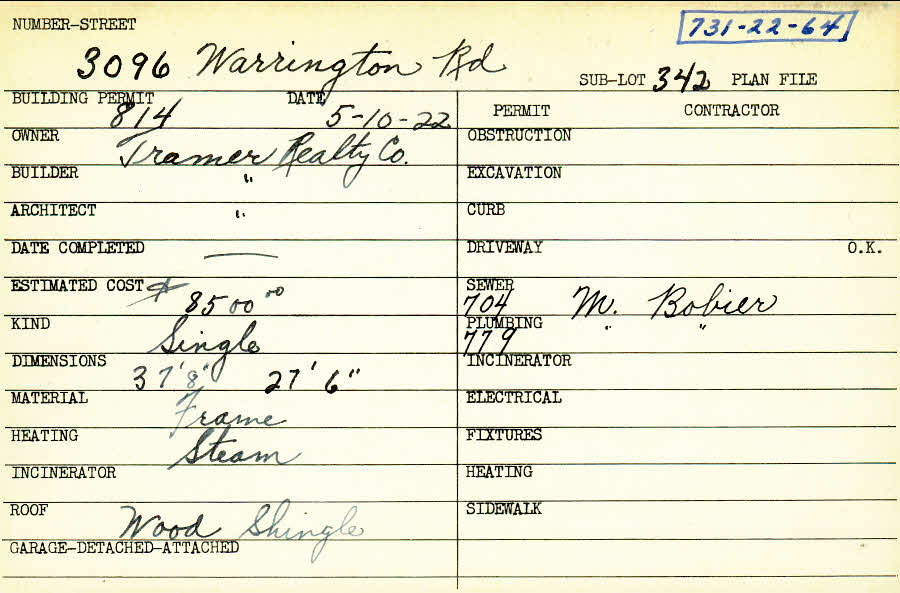 NUMBER-STREET
731-22-64
3096 Warrington Rd
SUB-LOT 342 PLAN FILE
BUILDING PERMIT DATE
814 5-10-22
PERMIT CONTRACTOR
OWNER Tramer Realty Co.
OBSTRUCTION
BUILDER "
EXCAVATION
ARCHITECT "
CURB
DATE COMPLETED —
DRIVEWAY O.K.
ESTIMATED COST $ 8500 00
SEWER
704 M. Bobier
KIND Single
PLUMBING " "
779
DIMENSIONS 37'8" 27'6"
INCINERATOR
MATERIAL Frame
ELECTRICAL
HEATING Steam
FIXTURES
INCINERATOR
HEATING
ROOF Wood Shingle
SIDEWALK
GARAGE-DETACHED-ATTACHED